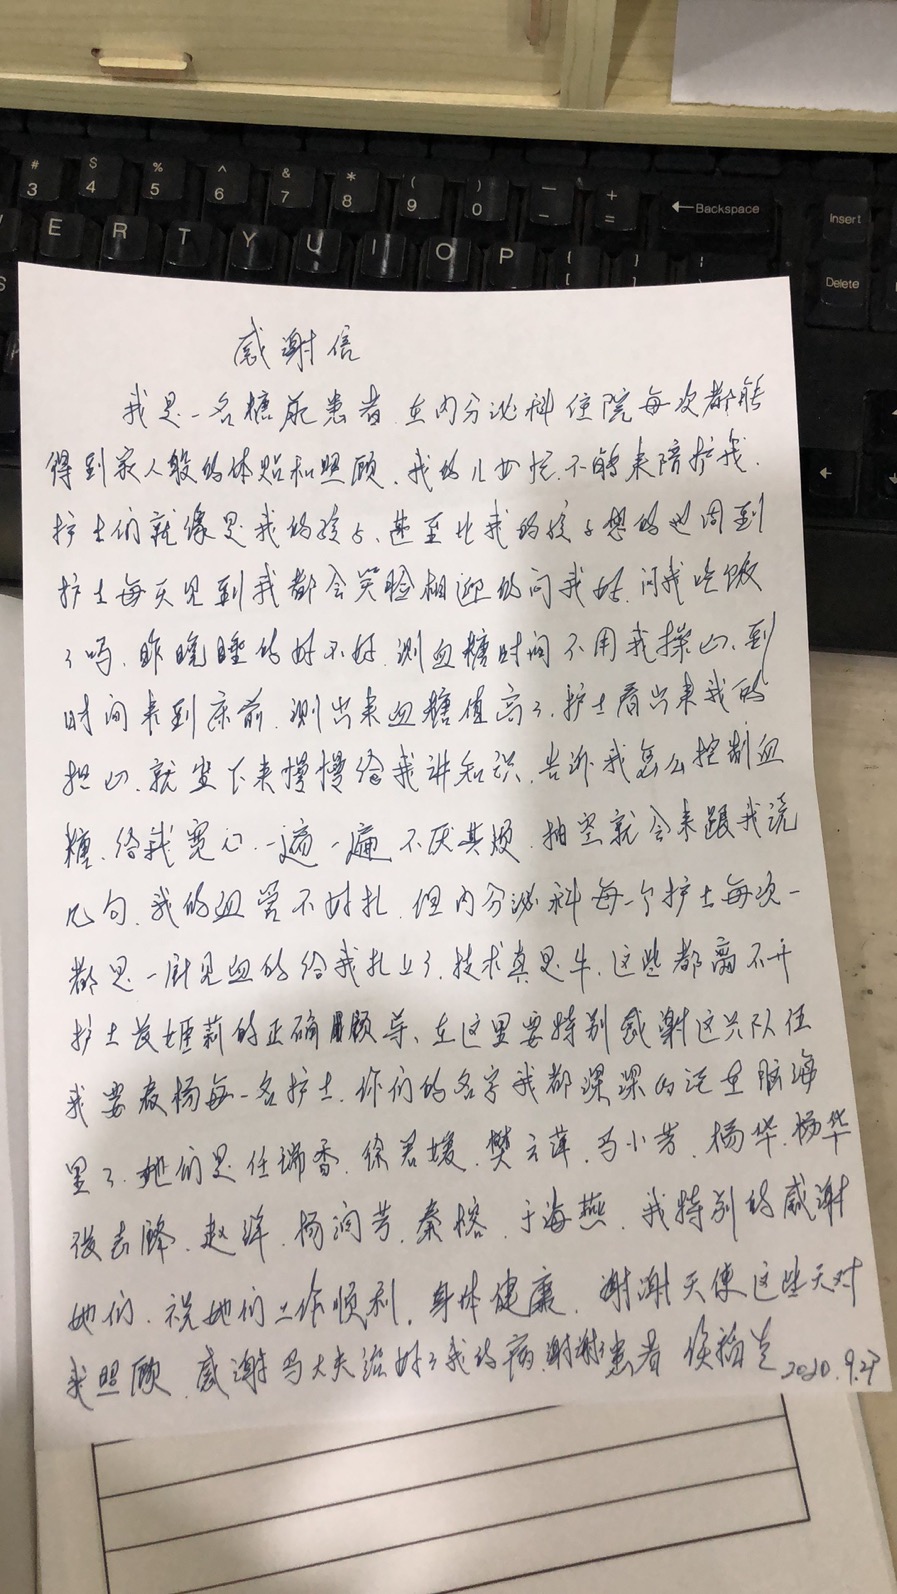 # 3 $ 4 % 5 ^ 6 & 7 * 8 ( 9 ) 0 — - + = ←Backspace Insert
E R T Y U I O P { [ } ] Delete
感谢信
我是一名糖尿患者 在内分泌科住院每次都能
得到家人般的体贴和照顾、我的儿女忙、不能来陪护我、
护士们就像是我的孩子、甚至比我的孩子想的也周到
护士每天见到我都会笑脸相迎的问我好、问我吃饭
了吗、昨晚睡的好不好、测血糖时间不用我操心、到
时间来到床前、测出来血糖值高了、护士看出来我的
担心、就坐下来慢慢给我讲知识、告诉我怎么控制血
糖、给我宽心、一遍一遍不厌其烦、抽空就会来跟我说
几句、我的血管不好扎、但内分泌科每一个护士每次一
都是一针见血的给我扎上了、技术真是牛、这些都离不开
护士长 莉的正确领导、在这里要特别感谢这只队伍
我要表杨每一名护士、你们的名字我都深深的记在脑海
里了、她们是任瑞香、徐君媛、樊云萍、马小芳、杨华、杨华
张志峰、赵洋、杨润芳、秦榕、于海燕、我特别的感谢
她们、祝她们工作顺利、身体健康、谢谢天使这些天对
我照顾、感谢马大夫治好了我的病、谢谢患者 侯 2020.9.27